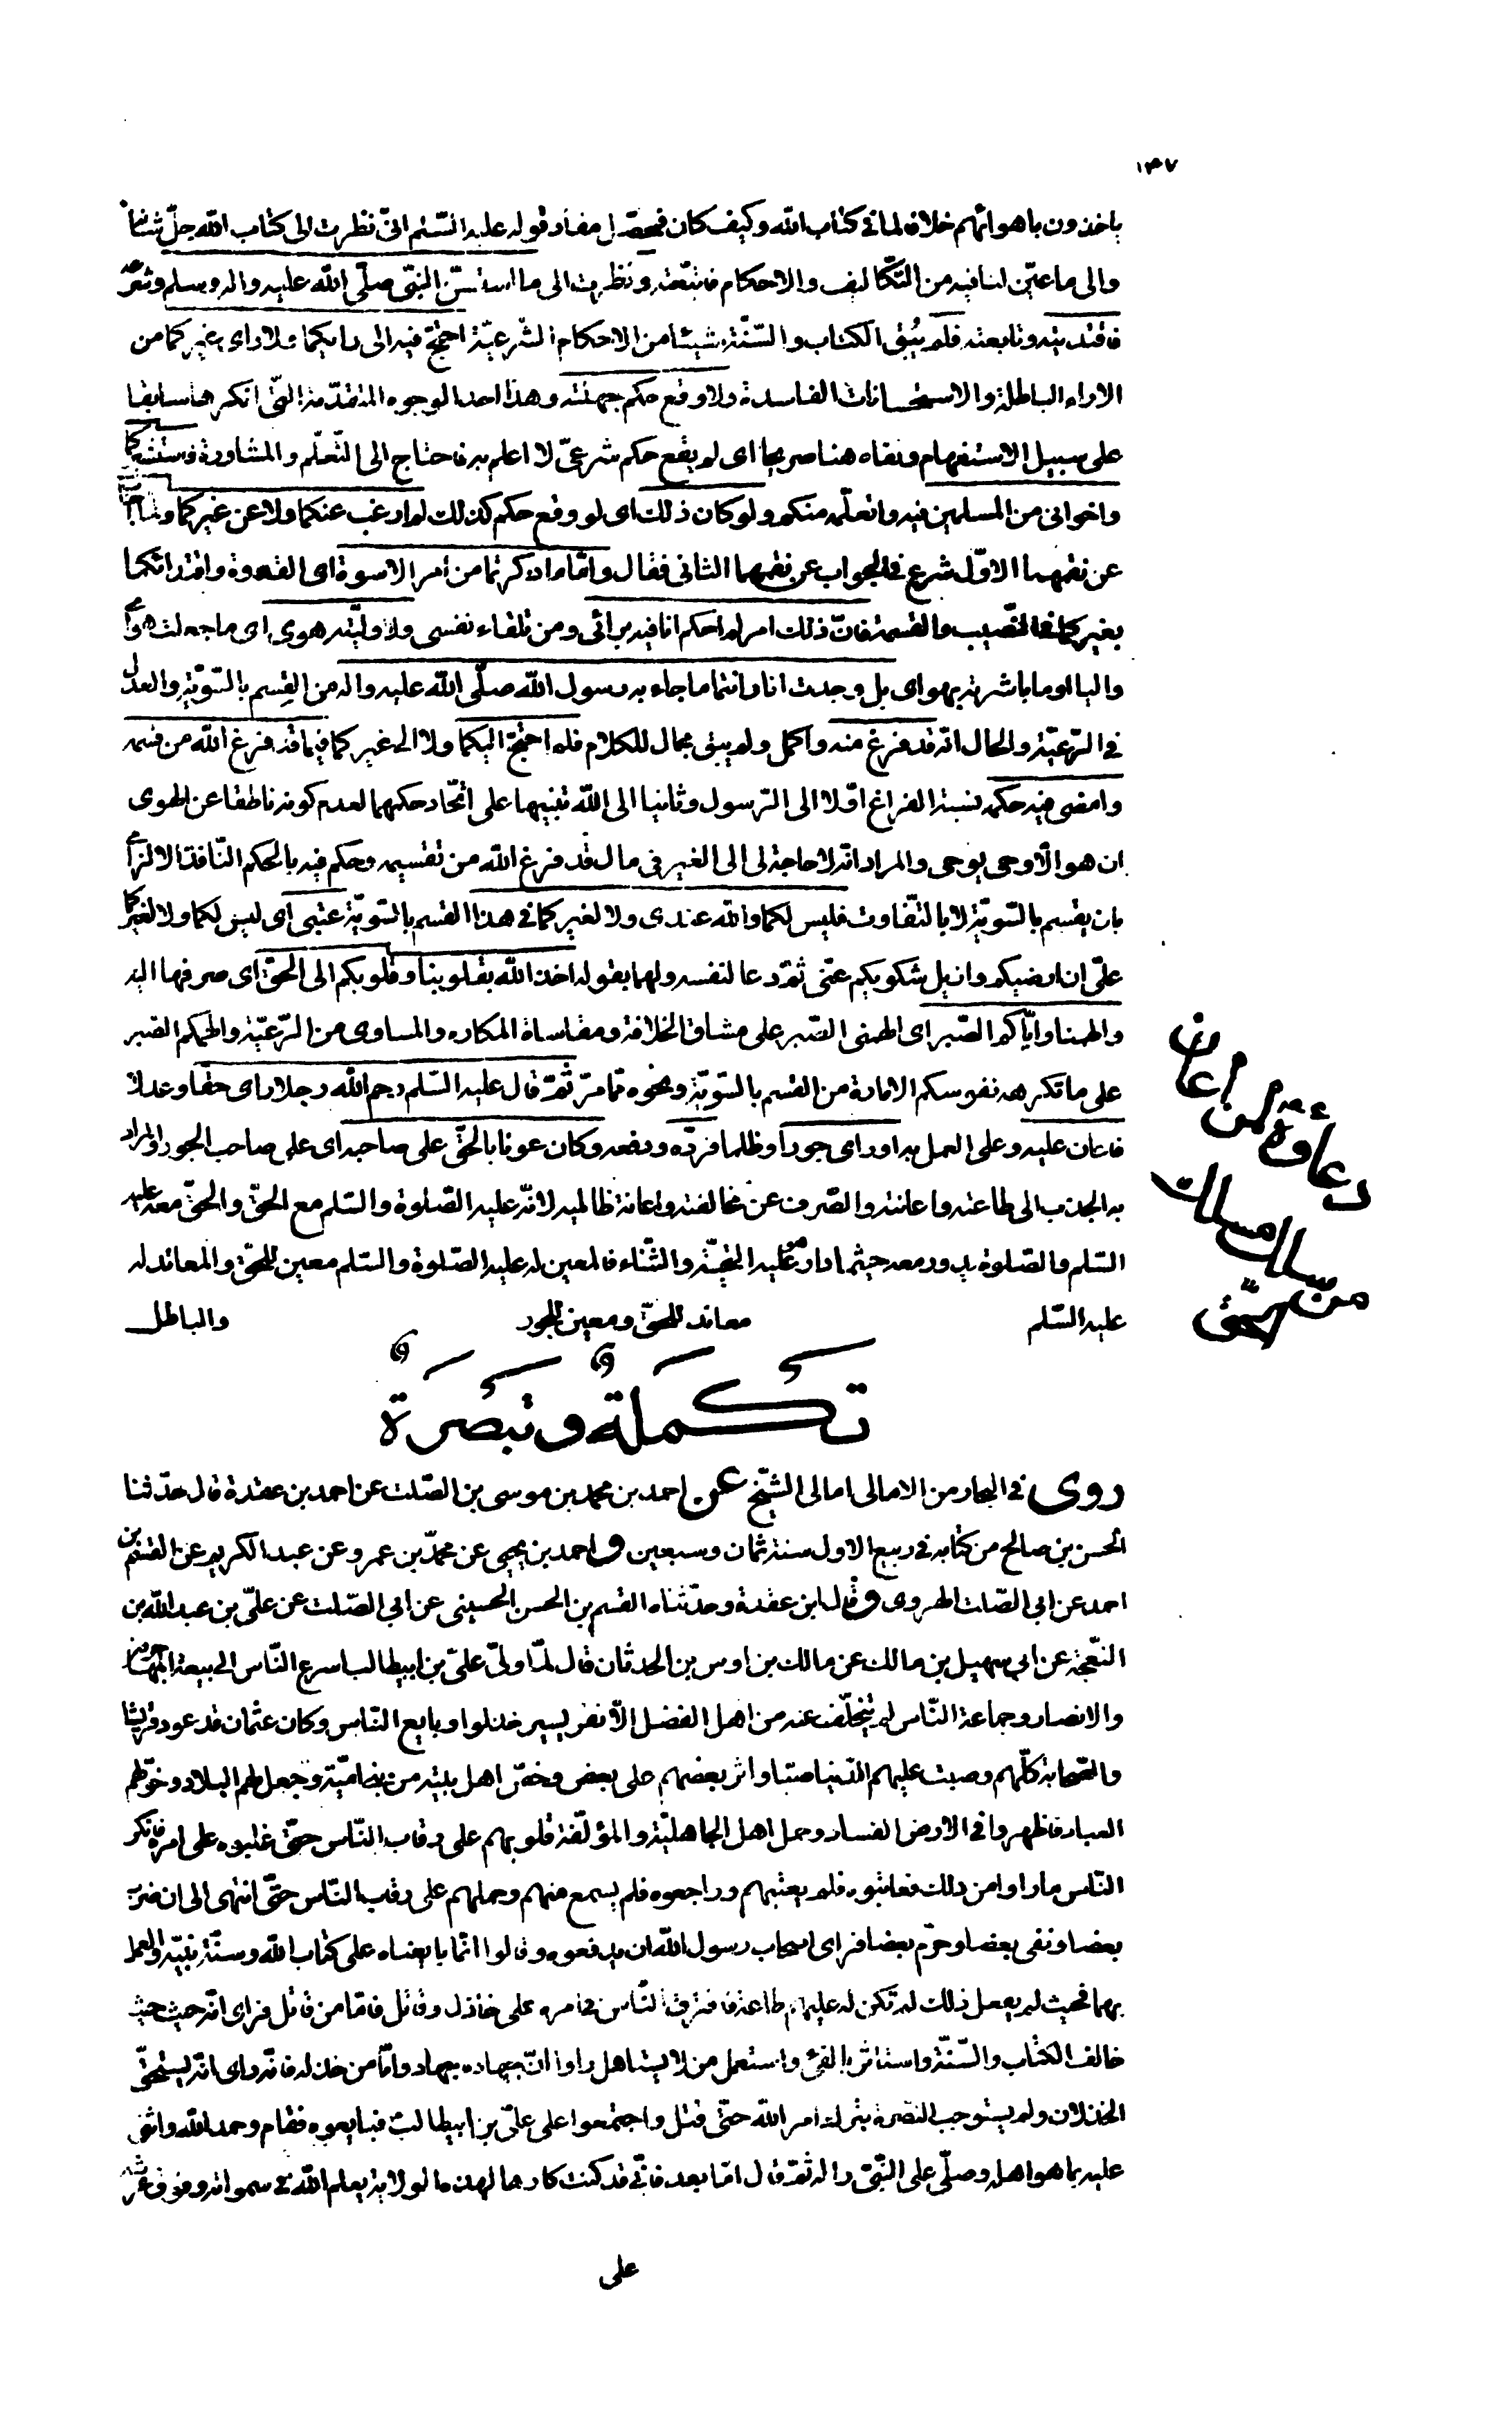 ١٣٧
ياخذون باهوائهم خلافا لما فى كتاب الله وكيف كان فمحصّل مفاد قوله عليه السّلم انّى نظرت الى كتاب الله جلّ شانه
والى ما عيّن لنا فيه من التكاليف والاحكام فاتبعته ونظرت الى ما استسنّ النبىّ صلّى الله عليه واله وسلم وشرّعه
فاقتديته وتابعته فلم يُبق الكتاب والسّنّة شيئا من الاحكام الشرعيّة احتج فيه الى رايكما ولا راى غيركما من
الاراء الباطلة والاستحسانات الفاسدة ولا وقع حكم جهلته وهذا احد الوجوه المتقدّمة الّتى انكرها سابقا
على سبيل الاستفهام ونفاه هنا صريحا اى لم يقع حكم شرعىّ لا اعلم به فاحتاج الى التّعلّم والمشاورة فاستشيركما
واخوانى من المسلمين فيه واتعلّمه منكم ولو كان ذلك اى لو وقع حكم كذلك لم ارغب عنكما ولا عن غيركما ولما اجاب
عن نقمهما الاوّل شرع فى الجواب عن نقمهما الثانى فقال وامّا ما ذكرتما من أمر الاسوة اى القدوة واقتدائكما
بغيركما فى النّصيب والقسمة فانّ ذلك امر لم احكم انا فيه برائى ومن تلقاء نفسى ولا وليّته هوى اى ما جعلت هواى
واليا او ما باشرته بهواى بل وجدت انا وانتما ما جاء به رسول الله صلّى الله عليه واله من القِسم بالسّويّة والعدل
فى الرّعيّة والحال انّه قد فرغ منه واكمل ولم يبق مجال للكلام فلم احتج اليكما ولا الى غيركما فيما قد فرغ الله من قسمه
وامضى فيه حكمه نسبة الفراغ اوّلا الى الرّسول وثانيا الى الله تنبيها على اتّحاد حكمهما لعدم كونه ناطقا عن الهوى
ان هو الّا وحى يوحى والمراد انّه لا حاجة لى الى الغير فى ما ل قد فرغ الله من تقسيمه وحكم فيه بالحكم النّافذ الالزامى
بان يقسم بالسّويّة لا بالتّفاوت فليس لكما والله عندى ولا لغيركما فى هذا القسم بالسّويّة عتبى أى ليس لكما ولا لغيركما
علىّ ان ارضيكم وازيل شكويكم عنّى ثمّ دعا لنفسه ولهما بقوله اخذ الله بقلوبنا وقلوبكم الى الحقّ اى صرفها اليه
والهمنا وايّاكم الصّبر اى الهمنى الصّبر على مشاق الخلافة ومقاساة المكاره والمساوى من الرّعيّة والهمكم الصّبر
على ما تكرهه نفوسكم الامارة من القسم بالسّويّة ونحوه ممّا مرّ ثمّ قال عليه السّلم رحم الله رجلا راى حقّا وعدلا
فاعان عليه وعلى العمل به او راى جورا وظلما فردّه ودفعه وكان عونا بالحقّ على صاحبه اى على صاحب الجور والمراد
به الجذب الى طاعته واعانته والصّرف عن مخالفته واعانة ظالميه لانّه عليه الصّلوة والسّلم مع الحقّ والحقّ معه عليه
السّلم والصّلوة يدور معه حيثما دار هو عليه التحيّة والثّناء فالمعين له عليه الصّلوة والسّلم معين للحقّ والمعاند له
عليه السّلم معاند للحقّ ومعين للجور والباطل
دعاؤه ع لمن اعان
من سلك مسلك الحقّ
تكملة وتبصرة
روى فى البحار من الامالى امالى الشيّخ عن احمد بن محمد بن موسى بن الصّلت عن احمد بن عقدة قال حدّثنا
الحسن بن صالح من كتابه فى ربيع الاول سنة ثمان وسبعين و احمد بن يحيى عن محمّد بن عمرو عن عبد الكريم عن القسم بن
احمد عن ابى الصّلت الهروى و قال ابن عقدة وحدّثناه القسم بن الحسن الحسينى عن ابى الصّلت عن علىّ بن عبد الله بن
النّعجة عن ابى سهيل بن مالك عن مالك بن اوس بن الحدثان قال لمّا ولىّ علىّ بن ابيطالب اسرع النّاس الى بيعته المهاجرون
والانصار وجماعة النّاس لم يتخلّف عنه من اهل الفضل الّا نفر يسير خذلوا وبايع النّاس وكان عثمان قد عود قريشا
والصّحابة كلّهم وصبت عليهم الدّنيا صبّا واثر بعضهم على بعض وخصّ اهل بيته من بنى اميّة وجعل لهم البلاد وخوّلهم
العباد فاظهروا فى الارض الفساد وحمل اهل الجاهليّة والمؤلّفة قلوبهم على رقاب النّاس حتّى غلبوه على امره فانكر
النّاس ما راوا من ذلك فعاتبوه فلم يعتبهم وراجعوه فلم يسمع منهم وحملهم على رقاب النّاس حتّى انتهى الى ان ضرب
بعضا ونفى بعضا وحرّم بعضا فراى اصحاب رسول الله ان يدفعوه وقالوا انّما بايعناه على كتاب الله وسنّة نبيّه والعمل
بهما فحيث لم يفعل ذلك لم تكن له عليهم طاعة فافترق النّاس فى امره على خاذل وقاتل فامّا من قاتل فراى انّه حيث
خالف الكتاب والسّنّة واستاثر بالفئ واستعمل من لا يستاهل راوا انّ جهاده جهاد وامّا من خذله فانّه راى انّه يستحقّ
الخذلان ولم يستوجب النّصرة بترك امر الله حتّى قتل واجتمعوا على علىّ بن ابيطالب فبايعوه فقام وحمد الله واثنى
عليه بما هو اهله وصلّى على النّبىّ واله ثمّ قال امّا بعد فانّى قد كنت كارها لهذه الولاية يعلم الله فى سمواته وفوق عرشه
على